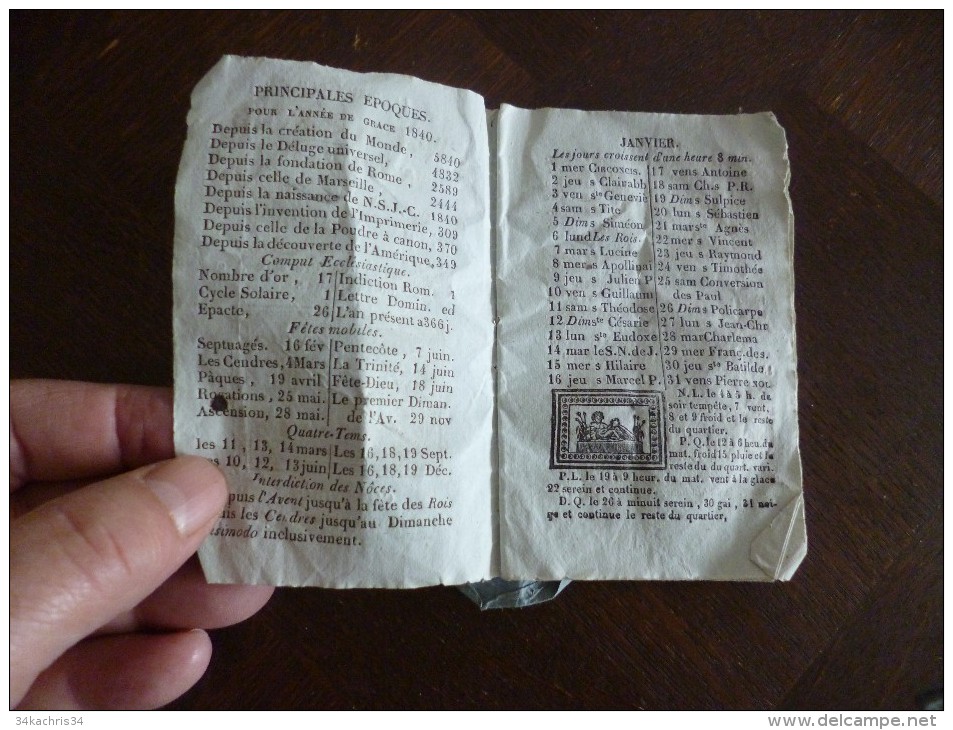 PRINCIPALES EPOQUES.
POUR L'ANNÉE DE GRACE 1840.
Depuis la création du Monde, 5840
Depuis le Déluge universel, 4832
Depuis la fondation de Rome, 2589
Depuis celle de Marseille, 2444
Depuis la naissance de N.S.J.-C. 1840
Depuis l'invention de l'Imprimerie, 309
Depuis celle de la Poudre à canon, 370
Depuis la découverte de l'Amérique, 349
Comput Ecclésiastique.
Nombre d'or, 17 Indiction Rom. 1
Cycle Solaire, 1 Lettre Domin. ed
Epacte, 26 L'an présent a 366 j.
Fêtes mobiles.
Septuagés. 16 fév Pentecôte, 7 juin.
Les Cendres, 4 Mars La Trinité, 14 juin
Pâques, 19 avril Fête-Dieu, 18 juin
Rogations, 25 mai. Le premier Diman.
Ascension, 28 mai. de l'Av. 29 nov
Quatre-Tems.
les 11, 13, 14 mars Les 16, 18, 19 Sept.
10, 12, 13 juin Les 16, 18, 19 Déc.
Interdiction des Nôces.
puis l'Avent jusqu'à la fête des Rois
les Cendres jusqu'au Dimanche
inclusivement.
JANVIER.
Les jours croissent d'une heure 8 min.
1 mer CIRCONCIS.
2 jeu s Clairabb
3 ven ste Geneviè
4 sam s Tite
5 Dim s Siméon
6 lund Les Rois.
7 mar s Lucine
8 mer s Apollinai
9 jeu s Julien P
10 ven s Guillaum
11 sam s Théodose
12 Dim ste Césarie
13 lun ste Eudoxe
14 mar le S.N. de J.
15 mer s Hilaire
16 jeu s Marcel P.
17 ven s Antoine
18 sam Ch. s P.R.
19 Dim s Sulpice
20 lun s Sébastien
21 mar ste Agnès
22 mer s Vincent
23 jeu s Raymond
24 ven s Timothée
25 sam Conversion
des Paul
26 Dim s Policarpe
27 lun s Jean-Chr
28 mar Charlema
29 mer Franç. des.
30 jeu ste Batilde
31 ven s Pierre NOL
N. L. le 4 à 5 h. de
soir tempête, 7 vent,
8 et 9 froid et le reste
du quartier.
P. Q. le 12 à 6 heu. du
mat. froid 15 pluie et le
reste du du quart. vari.
P. L. le 19 à 9 heur. du mat. vent à la glace
22 serein et continue.
D. Q. le 26 à minuit serein, 30 gai, 31 nei-
ge et continue le reste du quartier,
34kachris34
www.delcampe.net